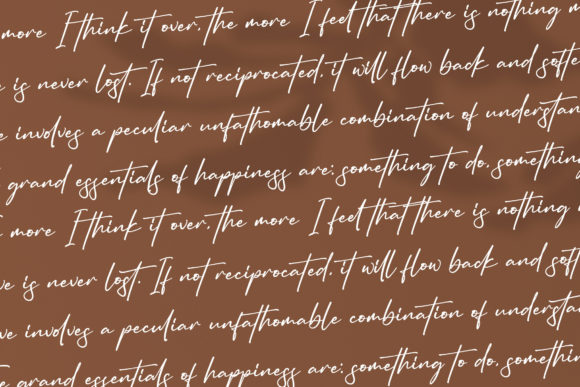 more I think it over, the more I feel that there is nothing m
e is never lost. If not reciprocated, it will flow back and softe
e involves a peculiar unfathomable combination of understan
grand essentials of happiness are: something to do, something
more I think it over, the more I feel that there is nothing
ve is never lost. If not reciprocated, it will flow back and soft
ve involves a peculiar unfathomable combination of understa
e grand essentials of happiness are: something to do, something